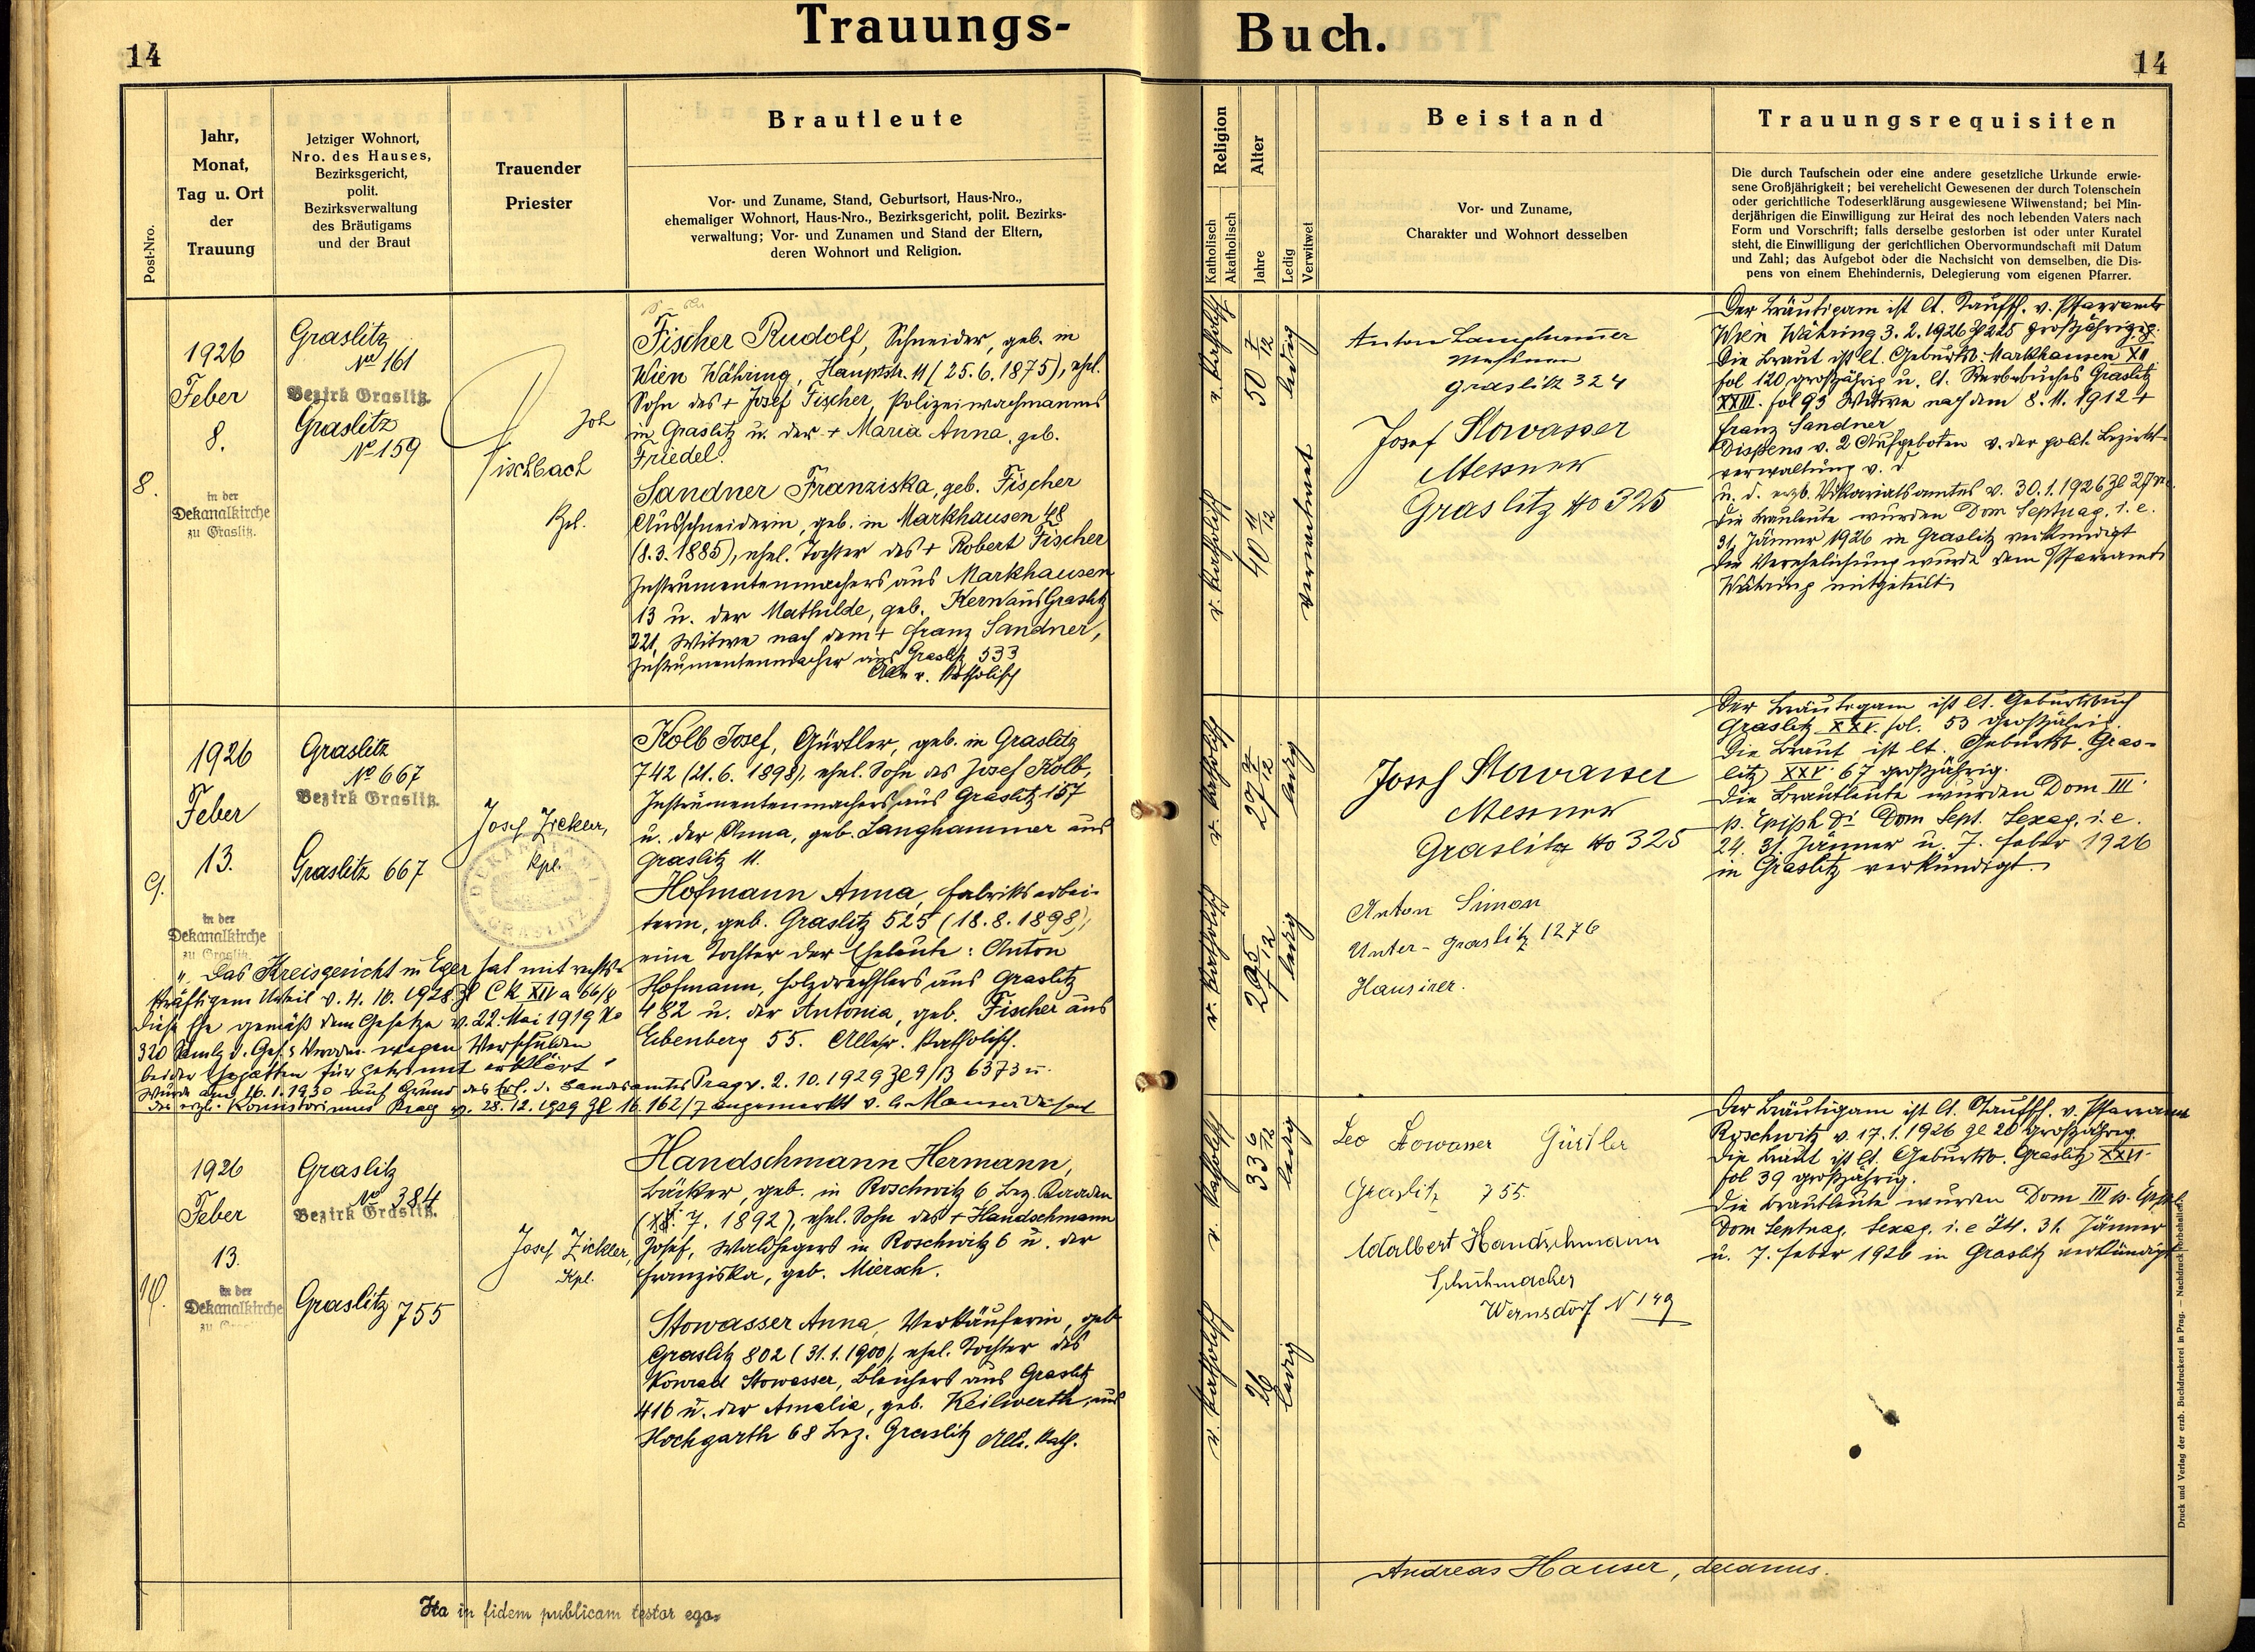 Trauungs-
Buch.
14
14
Post-Nro.
Jahr,
Monat,
Tag u. Ort
der
Trauung
Jetziger Wohnort,
Nro. des Hauses,
Bezirksgericht,
polit.
Bezirksverwaltung
des Bräutigams
und der Braut
Trauender
Priester
Brautleute
Vor- und Zuname, Stand, Geburtsort, Haus-Nro.,
ehemaliger Wohnort, Haus-Nro., Bezirksgericht, polit. Bezirks-
verwaltung; Vor- und Zunamen und Stand der Eltern,
deren Wohnort und Religion.
Religion
Katholisch
Akatholisch
Alter
Jahre
Ledig
Verwitwet
Beistand
Vor- und Zuname,
Charakter und Wohnort desselben
Trauungsrequisiten
Die durch Taufschein oder eine andere gesetzliche Urkunde erwie-
sene Großjährigkeit; bei verehelicht Gewesenen der durch Totenschein
oder gerichtliche Todeserklärung ausgewiesene Witwenstand; bei Min-
derjährigen die Einwilligung zur Heirat des noch lebenden Vaters nach
Form und Vorschrift; falls derselbe gestorben ist oder unter Kuratel
steht, die Einwilligung der gerichtlichen Obervormundschaft mit Datum
und Zahl; das Aufgebot oder die Nachsicht von demselben, die Dis-
pens von einem Ehehindernis, Delegierung vom eigenen Pfarrer.
8.
1926
Feber
8.
in der
Dekanalkirche
zu Graslitz.
Graslitz
No 161
Bezirk Graslitz.
Graslitz
No 159
Joh
Fischbach
Kpl.
Fischer Rudolf, Schneider, geb. in
Wien Währing, Hauptstr. 11 (25.6.1875), ehel.
Sohn des + Josef Fischer, Polizeiwachmannes
in Graslitz u. der + Maria Anna, geb.
Friedel.
Sandner Franziska, geb. Fischer
Ausschneiderin, geb. in Markhausen 48
(8.3.1885), ehel. Tochter des + Robert Fischer
Instrumentenmachers aus Markhausen
13 u. der Mathilde, geb. Kern aus Graslitz
221, Witwe nach dem + Franz Sandner,
Instrumentenmacher aus Graslitz 533
Alle r. katholisch
r. katholisch
50 7/12
ledig
r. katholisch
40 11/12
verwitwet
Anton Langhammer
Messner
Graslitz 324
Josef Stowasser
Messner
Graslitz No 325
Der Bräutigam ist lt. Taufsch. v. Pfarramte
Wien Währing 3.2.1926 Zl 225 großjährig.
Die Braut ist lt. Geburtsb. Markhausen XII
fol 120 großjährig u. lt. Sterbebuches Graslitz
XXIII. fol 93 Witwe nach dem 8.11.1912 +
Franz Sandner
Dispens v. 2 Aufgeboten v. der polit. Bezirks-
verwaltung v. d.
u. d. erzb. Vikariatsamtes v. 30.1.1926 Zl
Die Brautleute wurden Dom Septuag. i. e.
31. Jänner 1926 in Graslitz verkündigt
Die Verehelichung wurde dem Pfarramte
Währing mitgeteilt
9.
1926
Feber
13.
in der
Dekanalkirche
zu Graslitz.
Graslitz
No 667
Bezirk Graslitz.
Graslitz 667
Josef Zickler,
Kpl.
DEKANALAMT
GRASLITZ
Kolb Josef, Gürtler, geb. in Graslitz
742 (21.6.1898), ehel. Sohn des Josef Kolb,
Instrumentenmachers aus Graslitz 157
u. der Anna, geb. Langhammer aus
Graslitz 11.
Hofmann Anna, Fabriksarbei-
terin, geb. Graslitz 525 (18.8.1898),
eine Tochter der Eheleute: Anton
Hofmann, Holzdrechslers aus Graslitz
482 u. der Antonia, geb. Fischer aus
Eibenberg 55. Alle r. katholisch.
„Das Kreisgericht in Eger hat mit rechts-
kräftigem Urteil v. 4.10.1928 Zl Ck XIV a 66/8
diese Ehe gemäß dem Gesetze v. 22. Mai 1919 No
320 Samlg d. Ges. u. Verodn. wegen Verschulden
beider Ehegatten für getrennt erklärt“
Wurde am 16.1.1930 auf Grund des Erl. d. Landesamtes Prag v. 2.10.1929 Zl 9/B 6373 u.
des erzb. Konsistoriums Prag v. 28.12.1929 Zl 16.162/7 angemerkt
r. katholisch
27 7/12
ledig
r. katholisch
ledig
Josef Stowasser
Messner
Graslitz No 325
Anton Simon
Unter-Graslitz 1276
Hausierer.
Der Bräutigam ist lt. Geburtsbuch
Graslitz XXV. fol. 53 großjährig.
Die Braut ist lt. Geburtsb. Gras-
litz XXV. 67 großjährig.
Die Brautleute wurden Dom III.
p. Epiph. Dom Sept. Sexag. i. e.
24. 31. Jänner u. 7. Feber 1926
in Graslitz verkündigt.
10.
1926
Feber
13.
in der
Dekanalkirche
Graslitz
No 384
Bezirk Graslitz.
Graslitz 755
Josef Zickler,
Kpl.
Handschmann Hermann,
Bäcker, geb. in Roschwitz 6 Bez. Kaaden
7. 1892), ehel. Sohn des + Handschmann
Josef, Waldhegers in Roschwitz 6 u. der
Franziska, geb. Miersch.
Stowasser Anna, Verkäuferin, geb.
Graslitz 802 (31.1.1900), ehel. Tochter des
Konrad Stowasser, Bleichers aus Graslitz
416 u. der Amalia, geb. Keilwerth, aus
Hochgarth 68 Bez. Graslitz Alle r. kath.
r. katholisch
33 6/12
ledig
r. katholisch
26
ledig
Leo Stowasser Gürtler
Graslitz 755.
Adalbert Handschmann
Schuhmacher
Wernsdorf N 149
Der Bräutigam ist lt. Taufsch. v. Pfarramt
Roschwitz v. 17.1.1926 Zl 20 großjährig.
Die Braut ist lt. Geburtsb. Graslitz XXVI.
fol 39 großjährig.
Die Brautleute wurden Dom III p. Epiph.
Dom Septuag. Sexag. i. e 24. 31. Jänner
u. 7. Feber 1926 in Graslitz verkündigt
Ita in fidem publicam testor ego:
Andreas Hauser, decanus.
Druck und Verlag der erzb. Buchdruckerei in Prag. — Nachdruck vorbehalten.